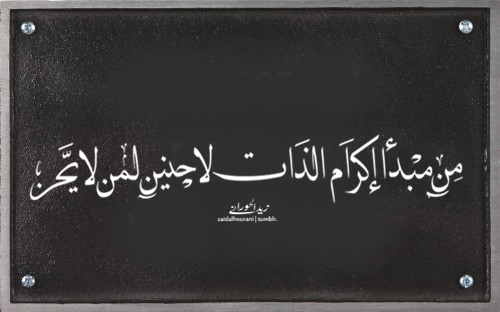 مِن مبْدأ إكرَام الذَات لا حنين لمن لا يَحن
زيد الحوراني
zaidalhourani | tumblr.